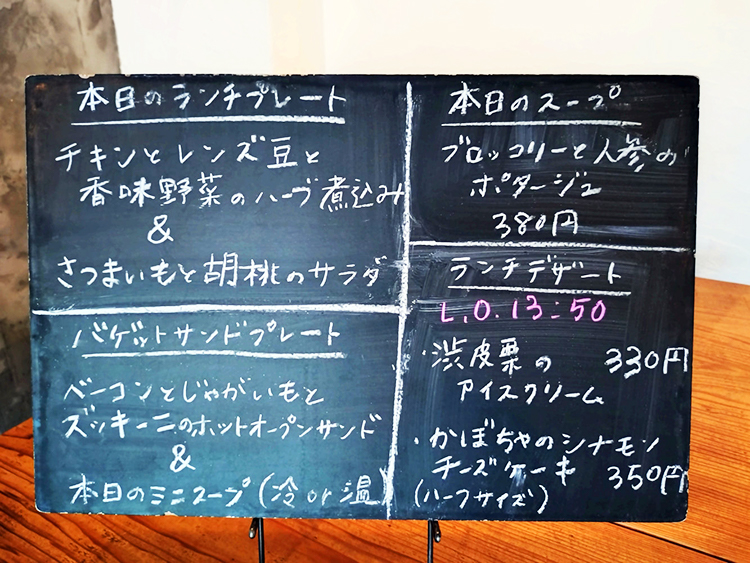 本日のランチプレート
チキンとレンズ豆と
香味野菜のハーブ煮込み
&
さつまいもと胡桃のサラダ
バゲットサンドプレート
ベーコンとじゃがいもと
ズッキーニのホットオープンサンド
&
本日のミニスープ(冷or温)
本日のスープ
ブロッコリーと人参の
ポタージュ
380円
ランチデザート
L.O.13:50
・渋皮栗の 330円
アイスクリーム
・かぼちゃのシナモン
チーズケーキ 350円
(ハーフサイズ)